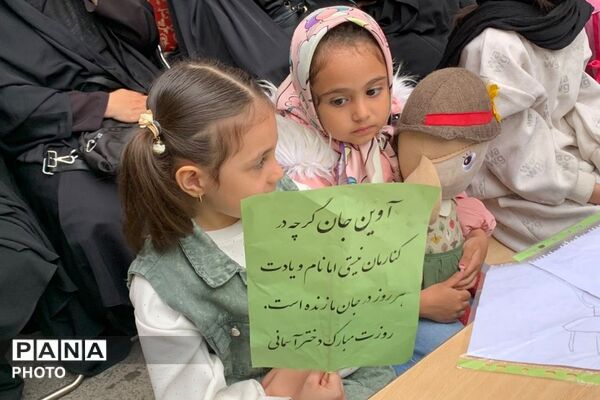 آوین جان گرچه در
کنارمان نیستی اما نام و یادت
هر روز در جان ما زنده است.
روزت مبارک دختر آسمانی
PANA
PHOTO